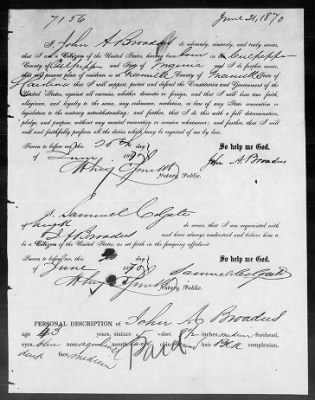 7156
June 21, 1870
I, John A Broadus do solemnly, sincerely, and truly swear,
that I am a Citizen of the United States, having been born in Culpepper
County of Culpepper and State of Virginia and I do further swear,
that my present place of residence is at Greenville County of Greenville State of
Carolina that I will support, protect and defend the Constitution and Government of the
United States, against all enemies, whether domestic or foreign, and that I will bear true faith,
allegiance, and loyalty to the same, any ordinance, resolution, or law of any State convention or
legislature to the contrary notwithstanding; and further, that I do this with a full determination,
pledge, and purpose, without any mental reservation or evasion whatsoever; and further, that I will
well and faithfully perform all the duties which may be required of me by law.
Sworn to before me, this 20th day
of June 1870
So help me God.
John A. Broadus
Notary Public.
I, Samuel Colgate
of do swear, that I am acquainted with
J A Broadus and have always understood and believe him to
be a Citizen of the United States, as set forth in the foregoing affidavit.
Sworn to before me, this day
of June 1870
So help me God.
Samuel Colgate
Notary Public.
PERSONAL DESCRIPTION of John A Broadus
age 43 years, stature 5 feet inches, medium forehead,
eyes nose mouth chin
hair complexion,
face medium
Paid